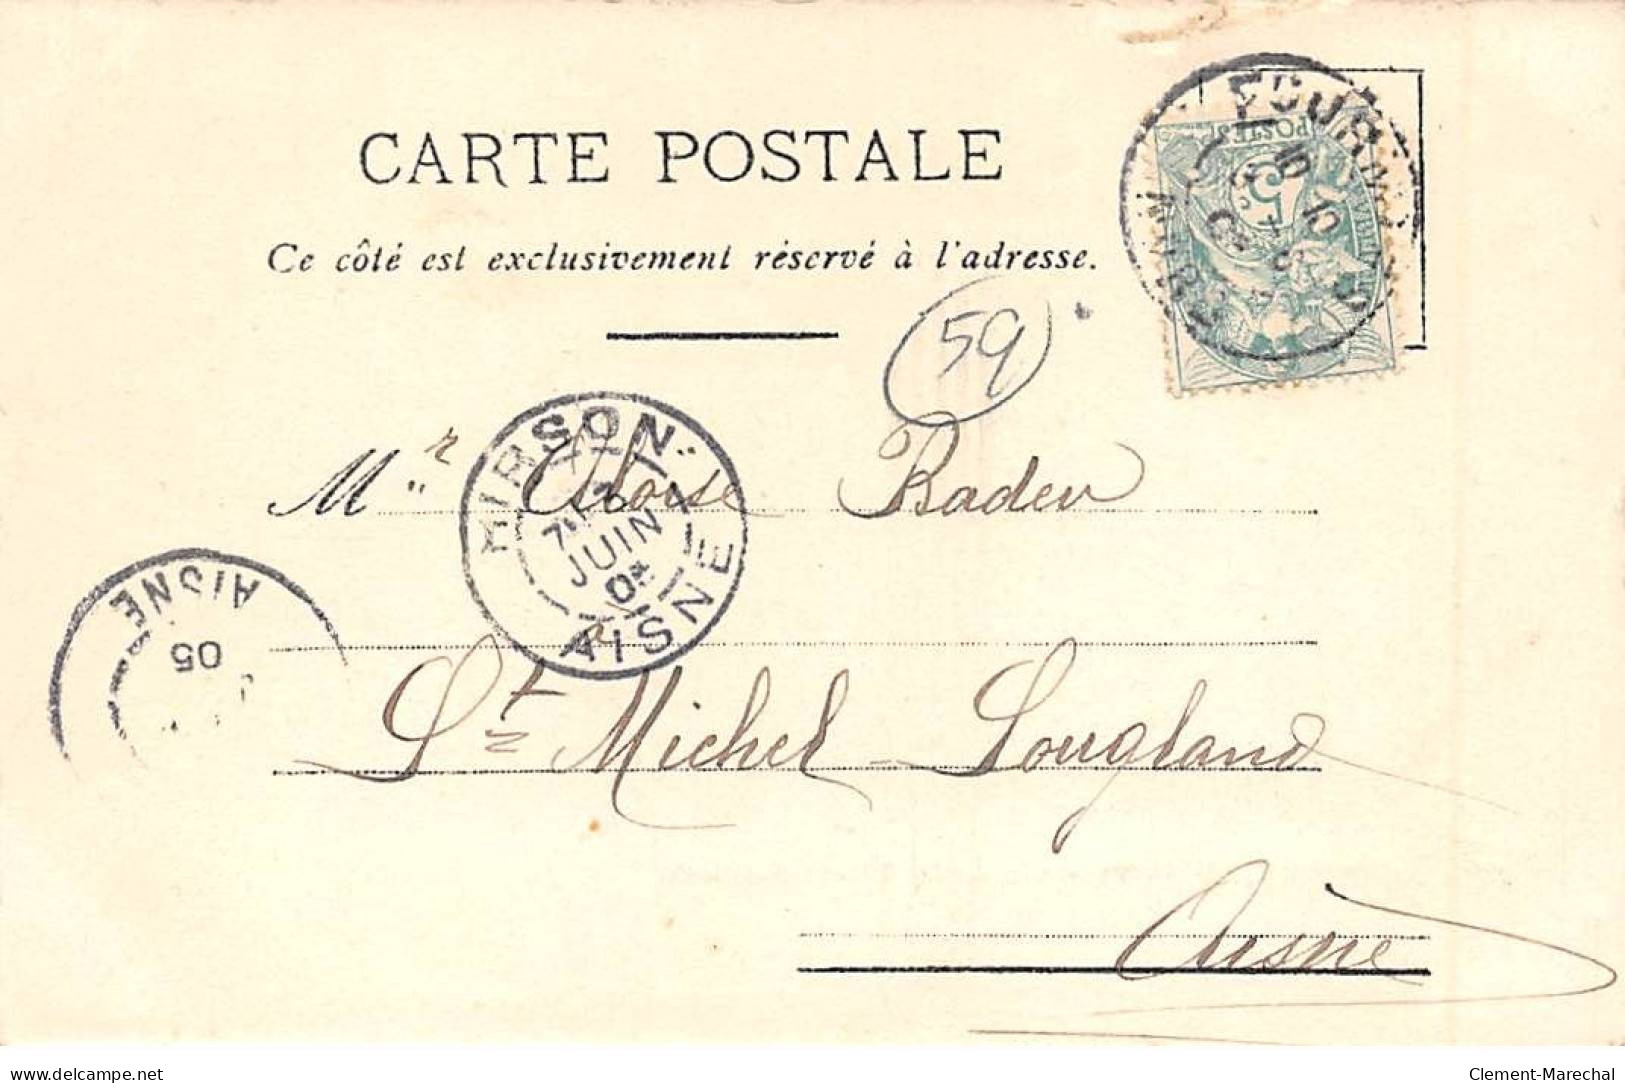 CARTE POSTALE
Ce côté est exclusivement réservé à l'adresse.
POSTES
5
10
59
HIRSON
JUIN
05
AISNE
Mr Aloïse Baden
AISNE
05
St Michel Sougland
Aisne
www.delcampe.net
Clement-Marechal